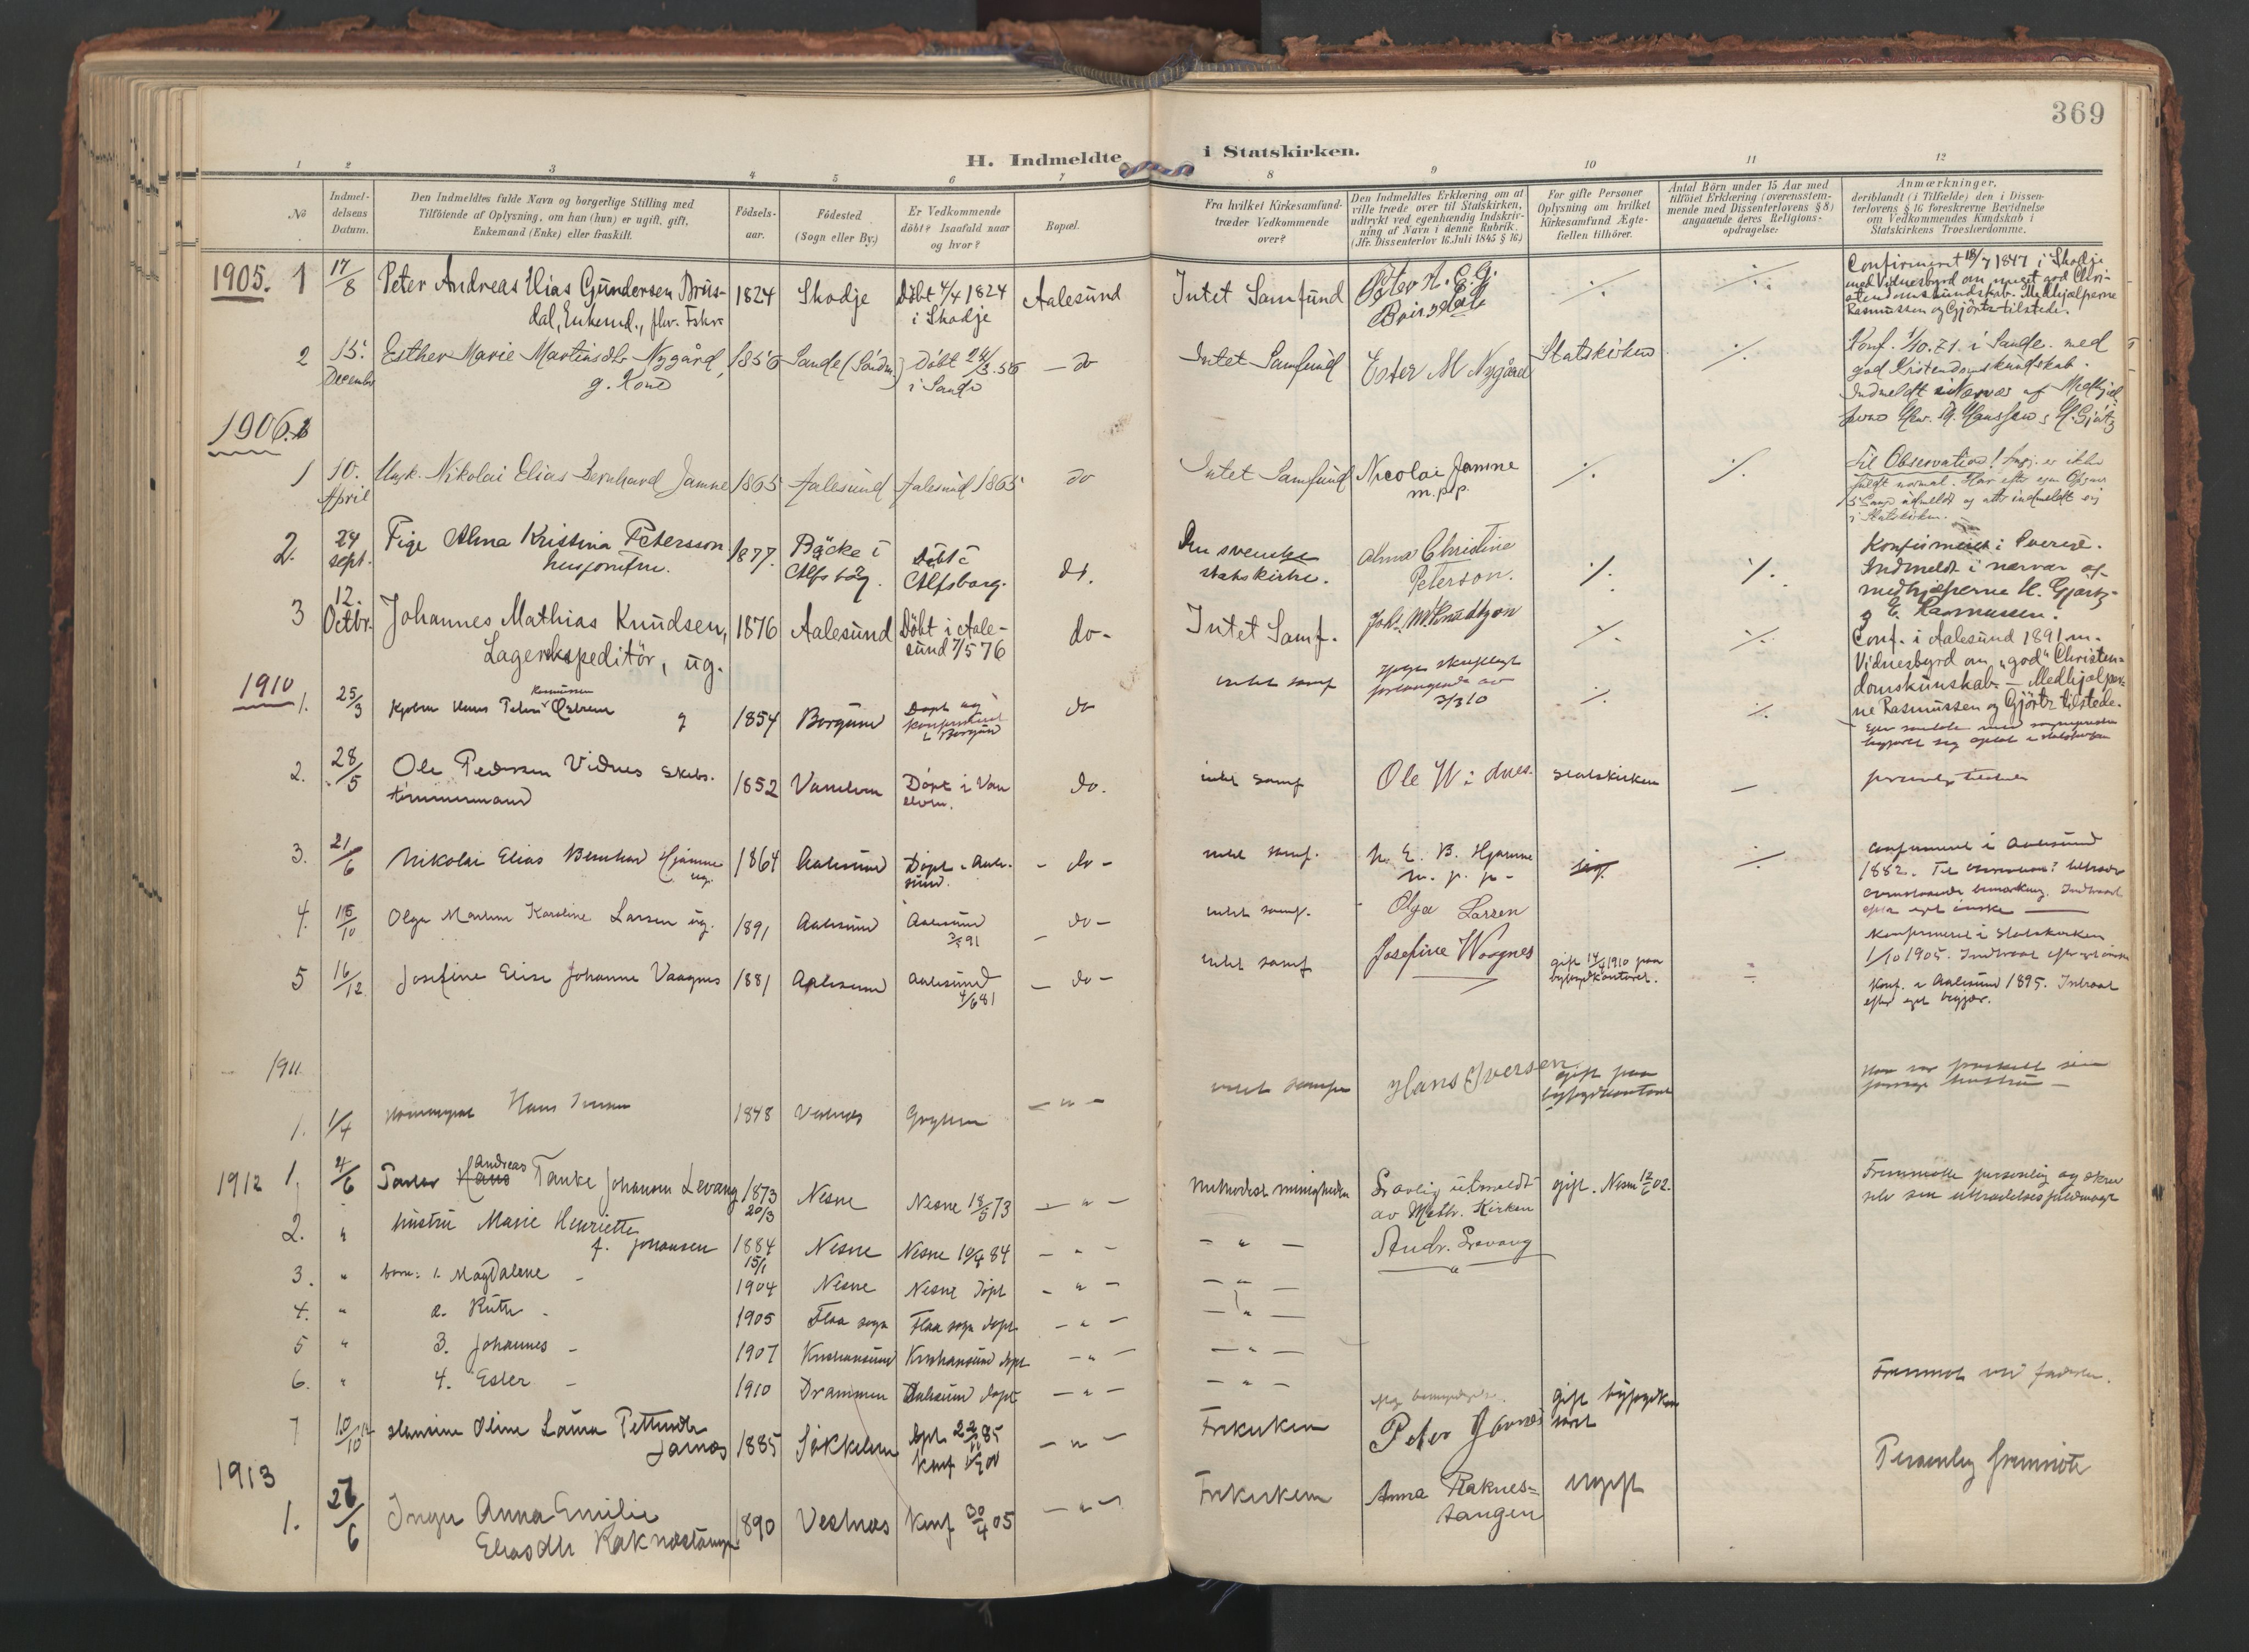 369
H. Indmeldte i Statskirken.
1 2 3 4 5 6 7 8 9 10 11 12
No
Indmel-
delsens
Datum.
Den Indmeldtes fulde Navn og borgerlige Stilling med
Tilföiende af Oplysning, om han (hun) er ugift, gift,
Enkemand (Enke) eller fraskilt.
Födsels-
aar.
Födested
(Sogn eller By.)
Er Vedkommende
döbt? Isaafald naar
og hvor?
Bopæl.
Fra hvilket Kirkesamfund
træder Vedkommende
over?
Den Indmeldtes Erklæring om at
ville træde over til Statskirken,
udtrykt ved egenhændig Indskriv-
ning af Navn i denne Rubrik.
(Jfr. Dissenterlov 16 Juli 1845 § 16)
For gifte Personer
Oplysning om hvilket
Kirkesamfund Ægte-
fællen tilhörer.
Antal Börn under 15 Aar med
tilföiet Erklæring (overensstem-
mende med Dissenterlovens § 8)
angaaende deres Religions-
opdragelse.
Anmærkninger,
deriblandt (i Tilfælde) den i Dissen-
terlovens § 16 foreskrevne Bevidnelse
om Vedkommendes Kundskab i
Statskirkens Troeslærdomme.
1905. 1 17/8 Peter Andreas Elias Gundersen Brus-
dal, Enkemd., fhv. Fskr.
1824 Skodje Döbt 4/4 1824
i Skodje
Aalesund Intet Samfund Peter A. E. G.
Brusdal
Confirmeret 18/7 1847 i Skodje
med Vidnesbyrd om meget god Chri-
stendomskundskab. Medhjælperne
Rasmussen og Gjörtz tilstede.
2 15. Decembr Esther Marie Martinsdtr Nygård,
g. Kone
1856 Sande (Söndm) Döbt 24/3.56
i Sande
do Intet Samfund Ester M Nygård Statskirken
Konf. 1/10.71. i Sande med
god Kristendomskundskab.
Indmeldt i Nærvær af Medhjæl-
1906.
1 10. April Ungk. Nikolai Elias Bernhard Jamne 1865 Aalesund Aalesund 1865 do Intet Samfund Nicolai Jamne
m.p.p.
Til Observation! er ikke
fuldt normal. Har efter egen
udmeldt og atter indmeldt sig
i Statskirken.
2. 24 sept. Pige Alma Kristina Petersson
husjomfru.
1877. Bäcke i
Alfsborg.
Döbt i
Alfsborg.
do. Den svenske
statskirke.
Alma Christine
Peterson.
Konfirmeret i Sverige.
Indmeldt i nærvær af
medhjælperne H. Gjørtz
og E. Rasmussen.
3 12. Octbr. Johannes Mathias Knudsen,
Lagerekspeditör, ug.
1876 Aalesund Döbt i Aale-
sund 7/5 76
do - Intet Samf. Joh. M Knudtzon
Conf. i Aalesund 1891 m.
Vidnesbyrd om "god" Christen-
domskundskab - Medhjælper-
ne Rasmussen og Gjörtz tilstede.
1910
1. 25/3 Hans Peter Rasmussen
g 1854 Borgund Döpt og
konfirmeret
i Borgund
do intet samf skriftligt
forlangende av
3/3 10
2. 28/5 Ole Pedersen Vidnes Skibs-
tømmermand
1852 Vanelven Döpt i Van
elven.
do. intet samf Ole Widnes. Statskirken
personlig tilstede
3. 21/6 Nikolai Elias Bernhar Hjamne
ug.
1864 Aalesund Döpt i Aale-
sund.
- do - intet samf. N. E. B. Hjamne
m. p. p.
confirmeret i Aalesund
1882. Til observation?
efter eget ønske
4. 15/10 Olga Marline Karoline Larsen ug. 1891 Aalesund Aalesund
do - intet samf. Olga Larsen
Konfirmeret i Statskirken
1/10 1905. Indtraat efter eget ønske
5 16/12 Josefine Elise Johanne Vaagnes 1881 Aalesund Aalesund
4/6 81
- do - intet samf Josefine Waagnes gift 14/4 1910 paa
byfogdkontoret.
Konf. i Aalesund 1895. Indtraat
efter eget begjær.
1911
1. 1/4 Hans Iversen 1848 Vestnes Grytten - " - intet samfun Hans Iversen gift paa
byfogdkontoret
1912 1. 4/6 Hans Andreas Tanke Johansen Levang 1873
20/3
Nesne Nesne 18/5 73 - " - Methodist menigheden Lovlig utmeldt
av Meth. Kirken
gift. Nesne 12/6 02.
Fremmøtte personlig og skrev
2. " hustru Marie Henriette
f. Johansen
1884
15/1
Nesne Nesne 10/4 84 - " - - " - Andr. Levang
3. " barn: 1. Magdalene - 1904 Nesne Nesne döpt - " - - " -
4. " 2. Ruth - 1905 Flaa sogn Flaa sogn döpt - " - - " -
5 " 3. Johannes - 1907 Kristiansund Kristiansund döpt - " - - " -
6. " 4. Ester - 1910 Drammen Aalesund døpt - " - - " -
7 10/10 12 Hansine Oline Laura Pettersdtr
Jarnæs
1885 Søkkelven døpt 22/11 85
konf 00
- " - Frikirken Peter Jarnes gift byfogdkon
toret
Fremmøt ved faderen.
1913
1. 27/6 Inga Anna Emilie
Eliasdtr Raknestangen
1890 Vestnes Konf 30/4 05 - " - Frikirken Anna Raknes-
tangen
ugift
Personlig fremmøtt